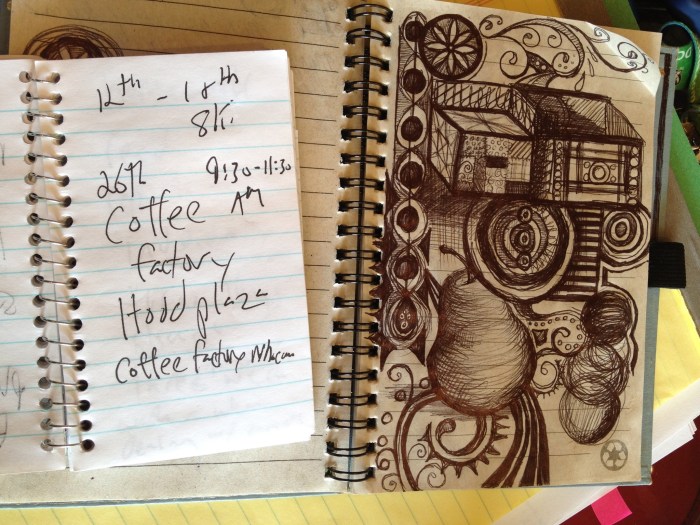 12th - 18th
26th 9:30-11:30
Coffee AM
factory
Hood plaza
Coffee factory